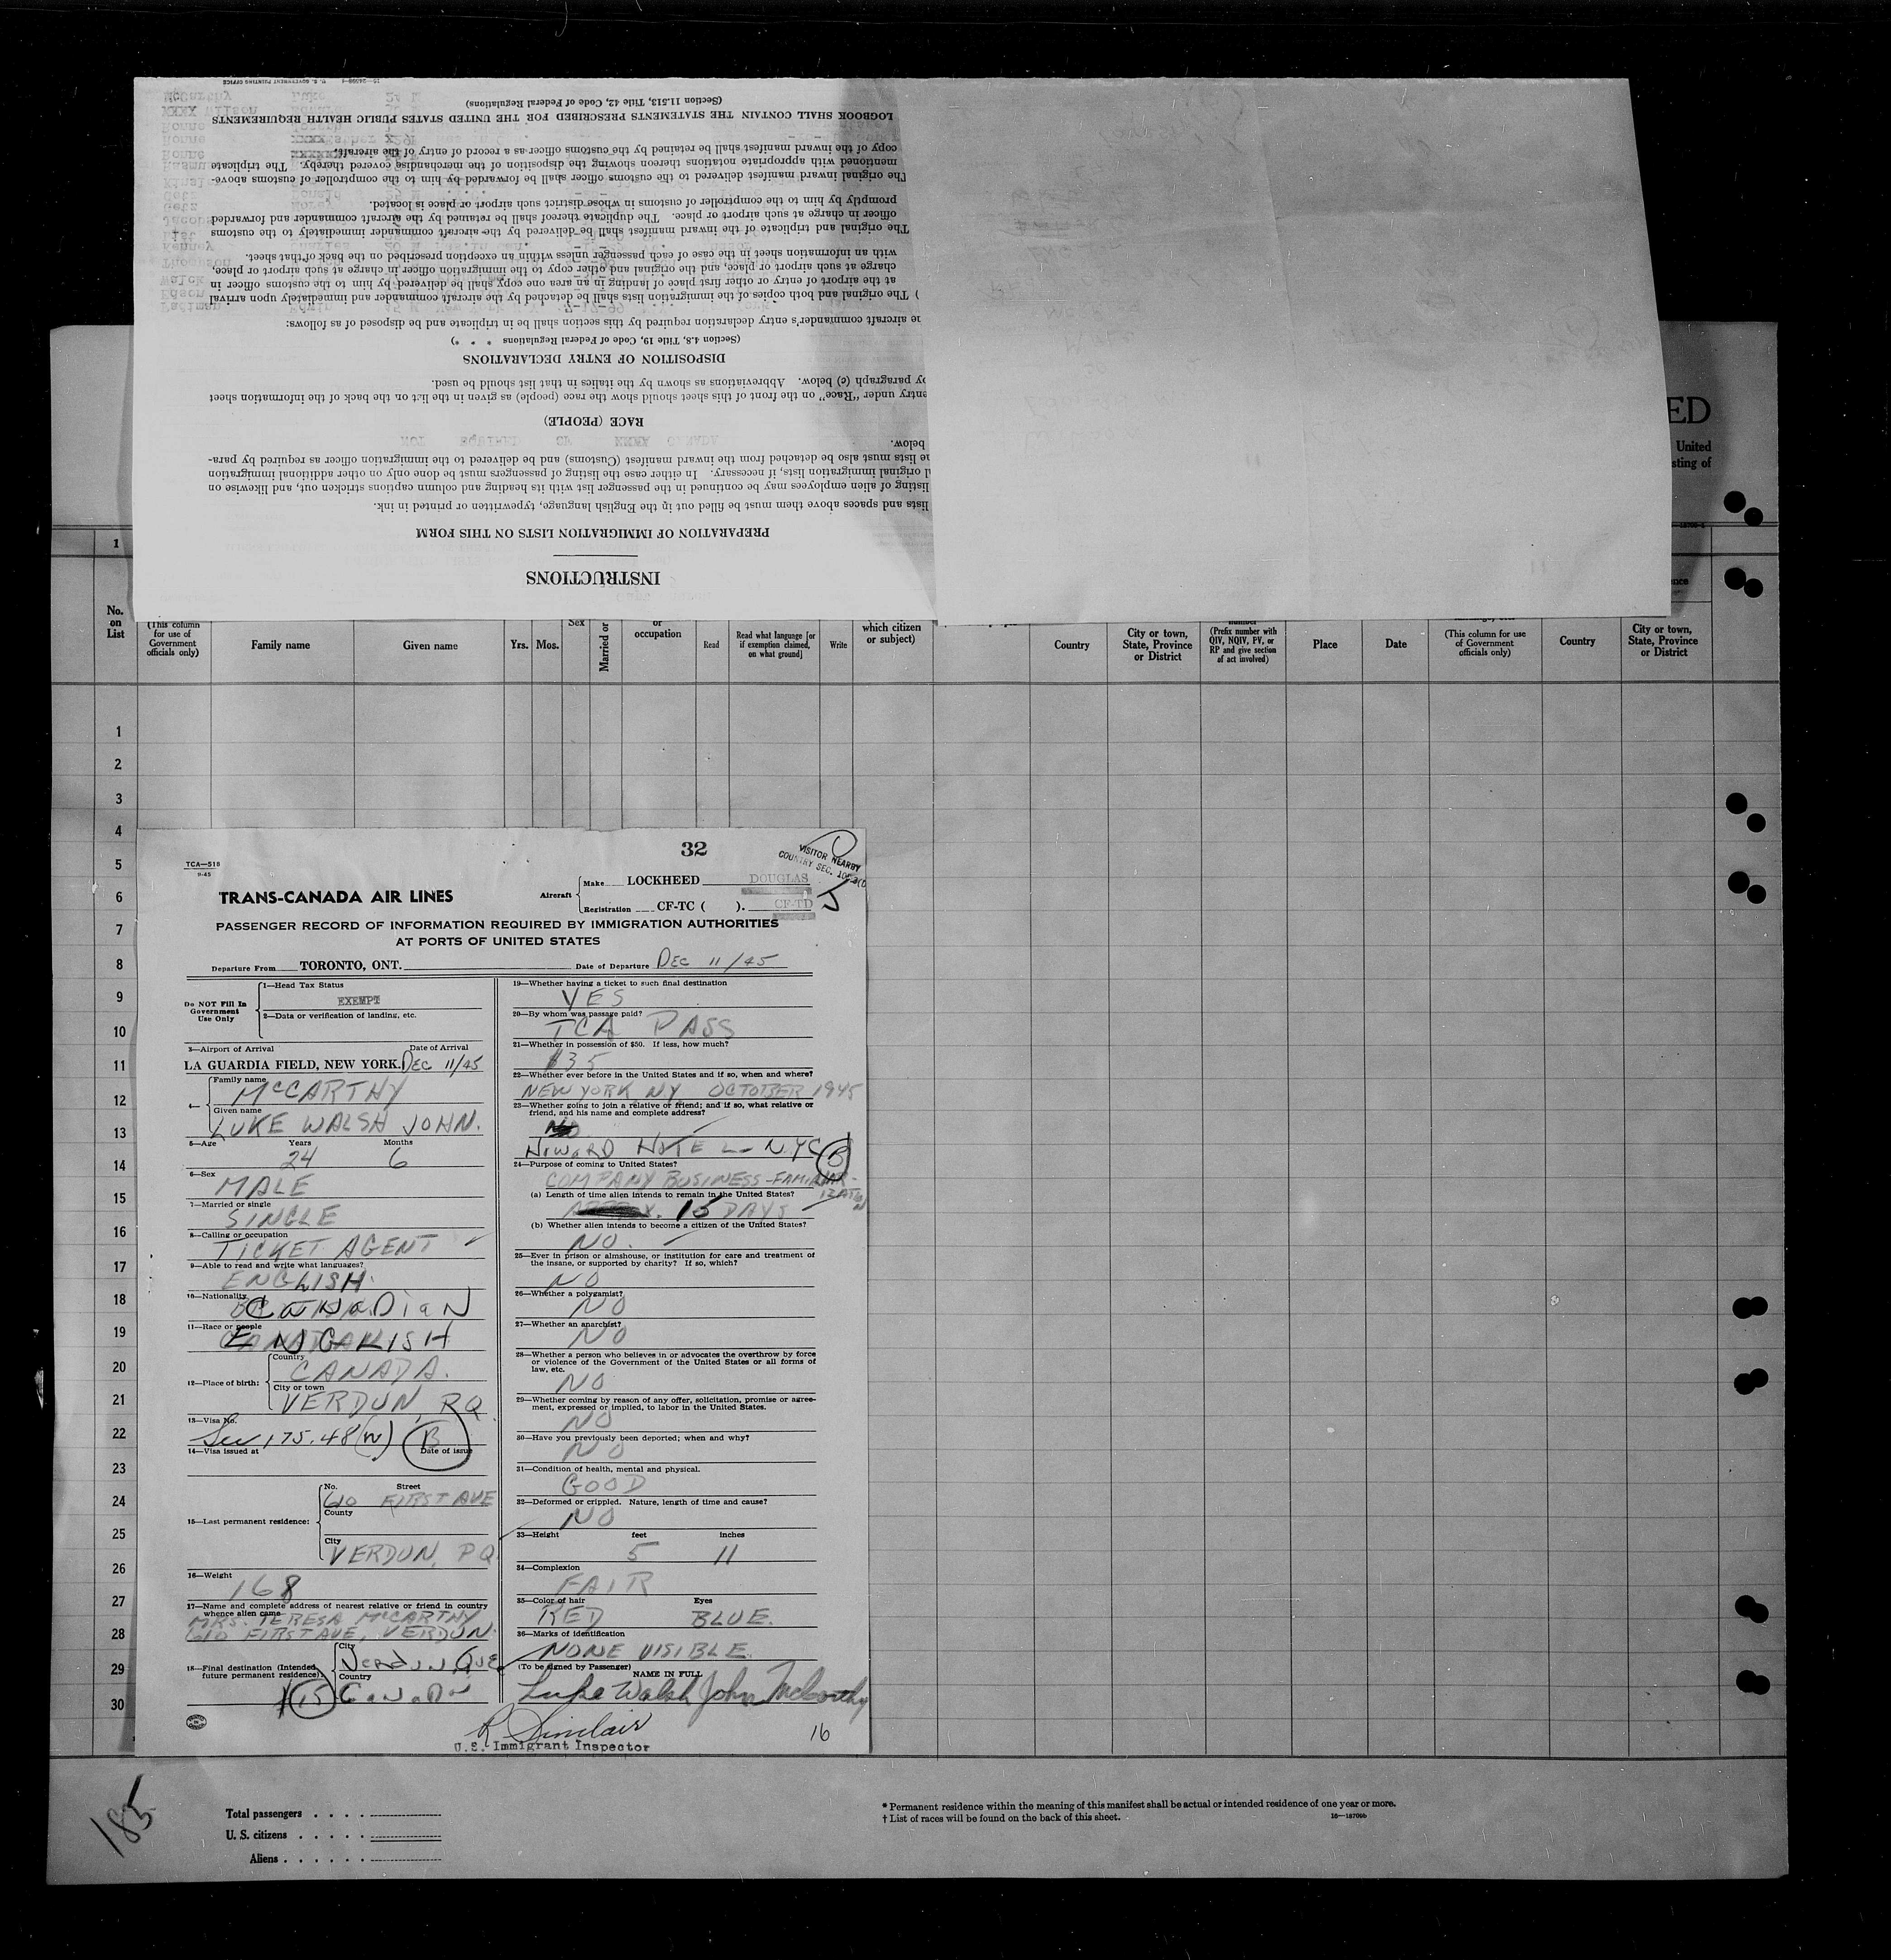 16—24098-1 U. S. GOVERNMENT PRINTING OFFICE
INSTRUCTIONS
PREPARATION OF IMMIGRATION LISTS ON THIS FORM
lists and spaces above them must be filled out in the English language, typewritten or printed in ink.
listing of alien employees may be continued in the passenger list with its heading and column captions stricken out, and likewise on
original immigration lists, if necessary. In either case the listing of passengers must be done only on other additional immigration
lists must also be detached from the inward manifest (Customs) and be delivered to the immigration officer as required by para-
below.
RACE (PEOPLE)
entry under "Race" on the front of this sheet should show the race (people) as given in the list on the back of the information sheet
by paragraph (c) below. Abbreviations as shown by the italics in that list should be used.
DISPOSITION OF ENTRY DECLARATIONS
(Section 4.8, Title 19, Code of Federal Regulations * * *)
aircraft commander's entry declaration required by this section shall be in triplicate and be disposed of as follows:
) The original and both copies of the immigration lists shall be detached by the aircraft commander and immediately upon arrival
at the airport of entry or other first place of landing in an area one copy shall be delivered by him to the customs officer in
charge at such airport or place, and the original and other copy to the immigration officer in charge at such airport or place,
with an information sheet in the case of each passenger unless within an exception prescribed on the back of that sheet.
The original and triplicate of the inward manifest shall be delivered by the aircraft commander immediately to the customs
officer in charge at such airport or place. The duplicate thereof shall be retained by the aircraft commander and forwarded
promptly by him to the comptroller of customs in whose district such airport or place is located.
The original inward manifest delivered to the customs officer shall be forwarded by him to the comptroller of customs above-
mentioned with appropriate notations thereon showing the disposition of the merchandise covered thereby. The triplicate
copy of the inward manifest shall be retained by the customs officer as a record of entry of the aircraft.
LOGBOOK SHALL CONTAIN THE STATEMENTS PRESCRIBED FOR THE UNITED STATES PUBLIC HEALTH REQUIREMENTS
(Section 11.513, Title 42, Code of Federal Regulations)
ED
United
sting of
1
No. on List
(This column for use of Government officials only)
Family name
Given name
Yrs. Mos.
Sex
Married or
or occupation
Read
Read what language [or if exemption claimed, on what ground]
Write
which citizen or subject)
Country
City or town, State, Province or District
number (Prefix number with QIV, NQIV, PV, or RP and give section of act involved)
Place
Date
(This column for use of Government officials only)
Country
City or town, State, Province or District
1
2
3
4
5
6
7
8
9
10
11
12
13
14
15
16
17
18
19
20
21
22
23
24
25
26
27
28
29
30
32
VISITOR NEARBY
COUNTRY SEC.
TCA—518
11-45
TRANS-CANADA AIR LINES
Aircraft
Make LOCKHEED DOUGLAS
Registration CF-TC ( ). CF-TD
5
PASSENGER RECORD OF INFORMATION REQUIRED BY IMMIGRATION AUTHORITIES
AT PORTS OF UNITED STATES
Departure From TORONTO, ONT. Date of Departure DEC 11/45
Do NOT Fill In Government Use Only
1—Head Tax Status
EXEMPT
2—Data or verification of landing, etc.
3—Airport of Arrival Date of Arrival
LA GUARDIA FIELD, NEW YORK. DEC 11/45
4—
Family name
McCARTHY
Given name
LUKE WALSH JOHN.
5—Age Years Months
24 6
6—Sex
MALE
7—Married or single
SINGLE
8—Calling or occupation
TICKET AGENT
9—Able to read and write what languages?
ENGLISH.
10—Nationality
CanaDiaN
11—Race or people
ENGLISH
12—Place of birth:
Country
CANADA.
City or town
VERDUN, PQ
13—Visa No.
Sec 175.48(w) B
14—Visa issued at Date of issue
15—Last permanent residence:
No. Street
610 FIRST AVE
County
City
VERDUN, PQ
16—Weight
168
17—Name and complete address of nearest relative or friend in country
whence alien came
MRS. TERESA McCARTHY
610 FIRST AVE, VERDUN.
18—Final destination (Intended
future permanent residence)
City
Verdun, Que
Country
CanaDa
15
19—Whether having a ticket to such final destination
YES
20—By whom was passage paid?
TCA PASS
21—Whether in possession of $50. If less, how much?
$35
22—Whether ever before in the United States and if so, when and where?
NEW YORK NY OCTOBER 1945
23—Whether going to join a relative or friend; and if so, what relative or
friend, and his name and complete address?
HOWARD HOTEL - N.Y.C. B
24—Purpose of coming to United States?
COMPANY BUSINESS - FAMILIAR-
IZATION
(a) Length of time alien intends to remain in the United States?
15 DAYS
(b) Whether alien intends to become a citizen of the United States?
NO.
25—Ever in prison or almshouse, or institution for care and treatment of
the insane, or supported by charity? If so, which?
NO
26—Whether a polygamist?
NO
27—Whether an anarchist?
NO
28—Whether a person who believes in or advocates the overthrow by force
or violence of the Government of the United States or all forms of
law, etc.
NO
29—Whether coming by reason of any offer, solicitation, promise or agree-
ment, expressed or implied, to labor in the United States.
NO
30—Have you previously been deported; when and why?
NO
31—Condition of health, mental and physical.
GOOD
32—Deformed or crippled. Nature, length of time and cause?
NO
33—Height feet inches
5 11
34—Complexion
FAIR
35—Color of hair Eyes
RED BLUE.
36—Marks of identification
NONE VISIBLE
(To be signed by Passenger) NAME IN FULL
Luke Walsh John McCarthy
R. Sinclair
U.S. Immigrant Inspector
16
185
Total passengers
U. S. citizens
Aliens
* Permanent residence within the meaning of this manifest shall be actual or intended residence of one year or more.
† List of races will be found on the back of this sheet.
16—18709b